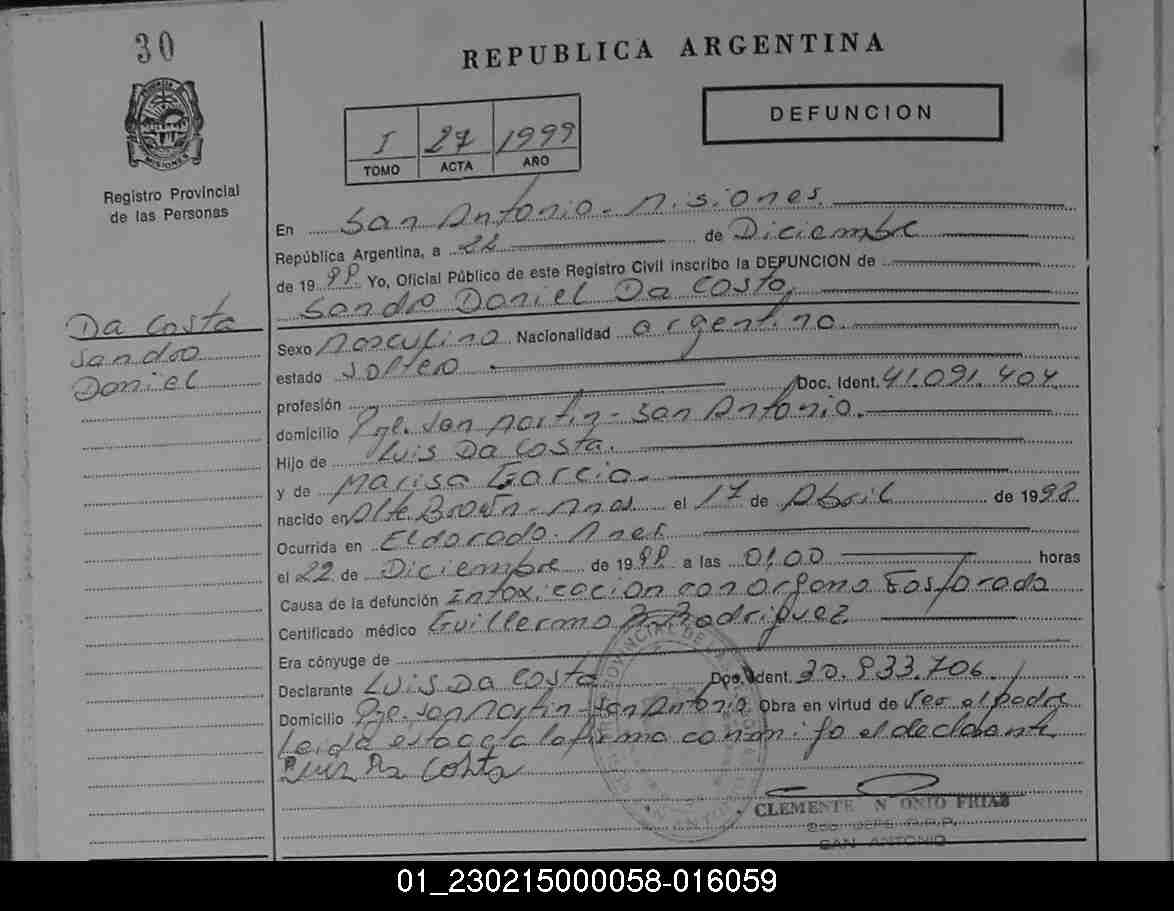 30
REPUBLICA ARGENTINA
DEFUNCION
I 27 1999
TOMO ACTA AÑO
MISIONES
Registro Provincial
de las Personas
En San Antonio - Misiones
República Argentina, a 22 de Diciembre
de 1999. Yo, Oficial Público de este Registro Civil inscribo la DEFUNCION de
Sandro Daniel Da Costa
Da Costa
Sandro
Daniel
Sexo Masculino Nacionalidad argentino
estado Soltero
profesión Doc. Ident. 41.091.404
domicilio Pje. San Martin - San Antonio.
Hijo de Luis Da Costa.
y de Marisa Garcia
nacido en Alte. Brown - Mnes el 17 de Abril de 1998
Ocurrida en Eldorado - Mnes
el 22 de Diciembre de 1999 a las 01,00 horas
Causa de la defunción Intoxicacion con organo Fosforado
Certificado médico Guillermo Rodriguez
Era cónyuge de
Declarante Luis Da Costa Doc. Ident. 30.833.706.
Domicilio Pje. San Martin - San Antonio Obra en virtud de Ser el padre
Leida esta acta la firma conmigo el declarante
Luis Da Costa
CLEMENTE ONIO FRIAS
SAN ANTONIO
01_230215000058-016059